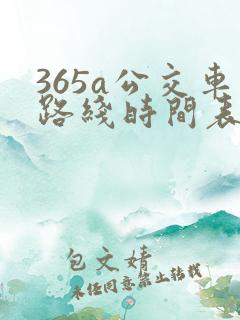 365a公交车
路线时间表
包文婧
未经同意禁止转载